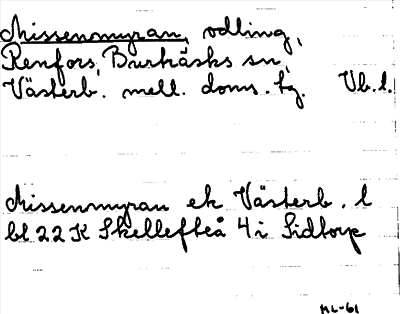 Missenmyran, odling,
Renfors, Burträsks sn,
Västerb. mell. doms. tg. Vb. l.
Missenmyran ek Västerb. l
bl 22 K Skellefteå 4 i Sidtorp
ML-61